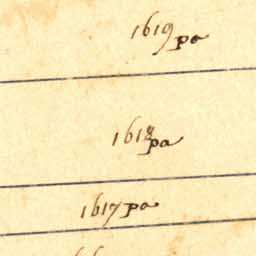 1619 pa
1618 pa
1617 pa